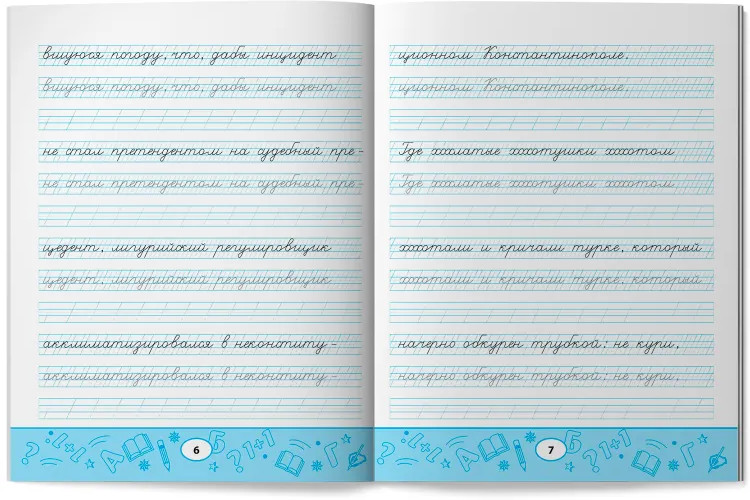 вшуюся погоду, что, дабы инцидент
вшуюся погоду, что, дабы инцидент
не стал претендентом на судебный пре-
не стал претендентом на судебный пре-
цедент, лигурийский регулировщик
цедент, лигурийский регулировщик
акклиматизировался в неконститу-
акклиматизировался в неконститу-
6
ционном Константинополе.
ционном Константинополе.
Где хохлатые хохотушки хохотом
Где хохлатые хохотушки хохотом
хохотали и кричали турке, который
хохотали и кричали турке, который
начерно обкурен трубкой: не кури,
начерно обкурен трубкой: не кури,
7